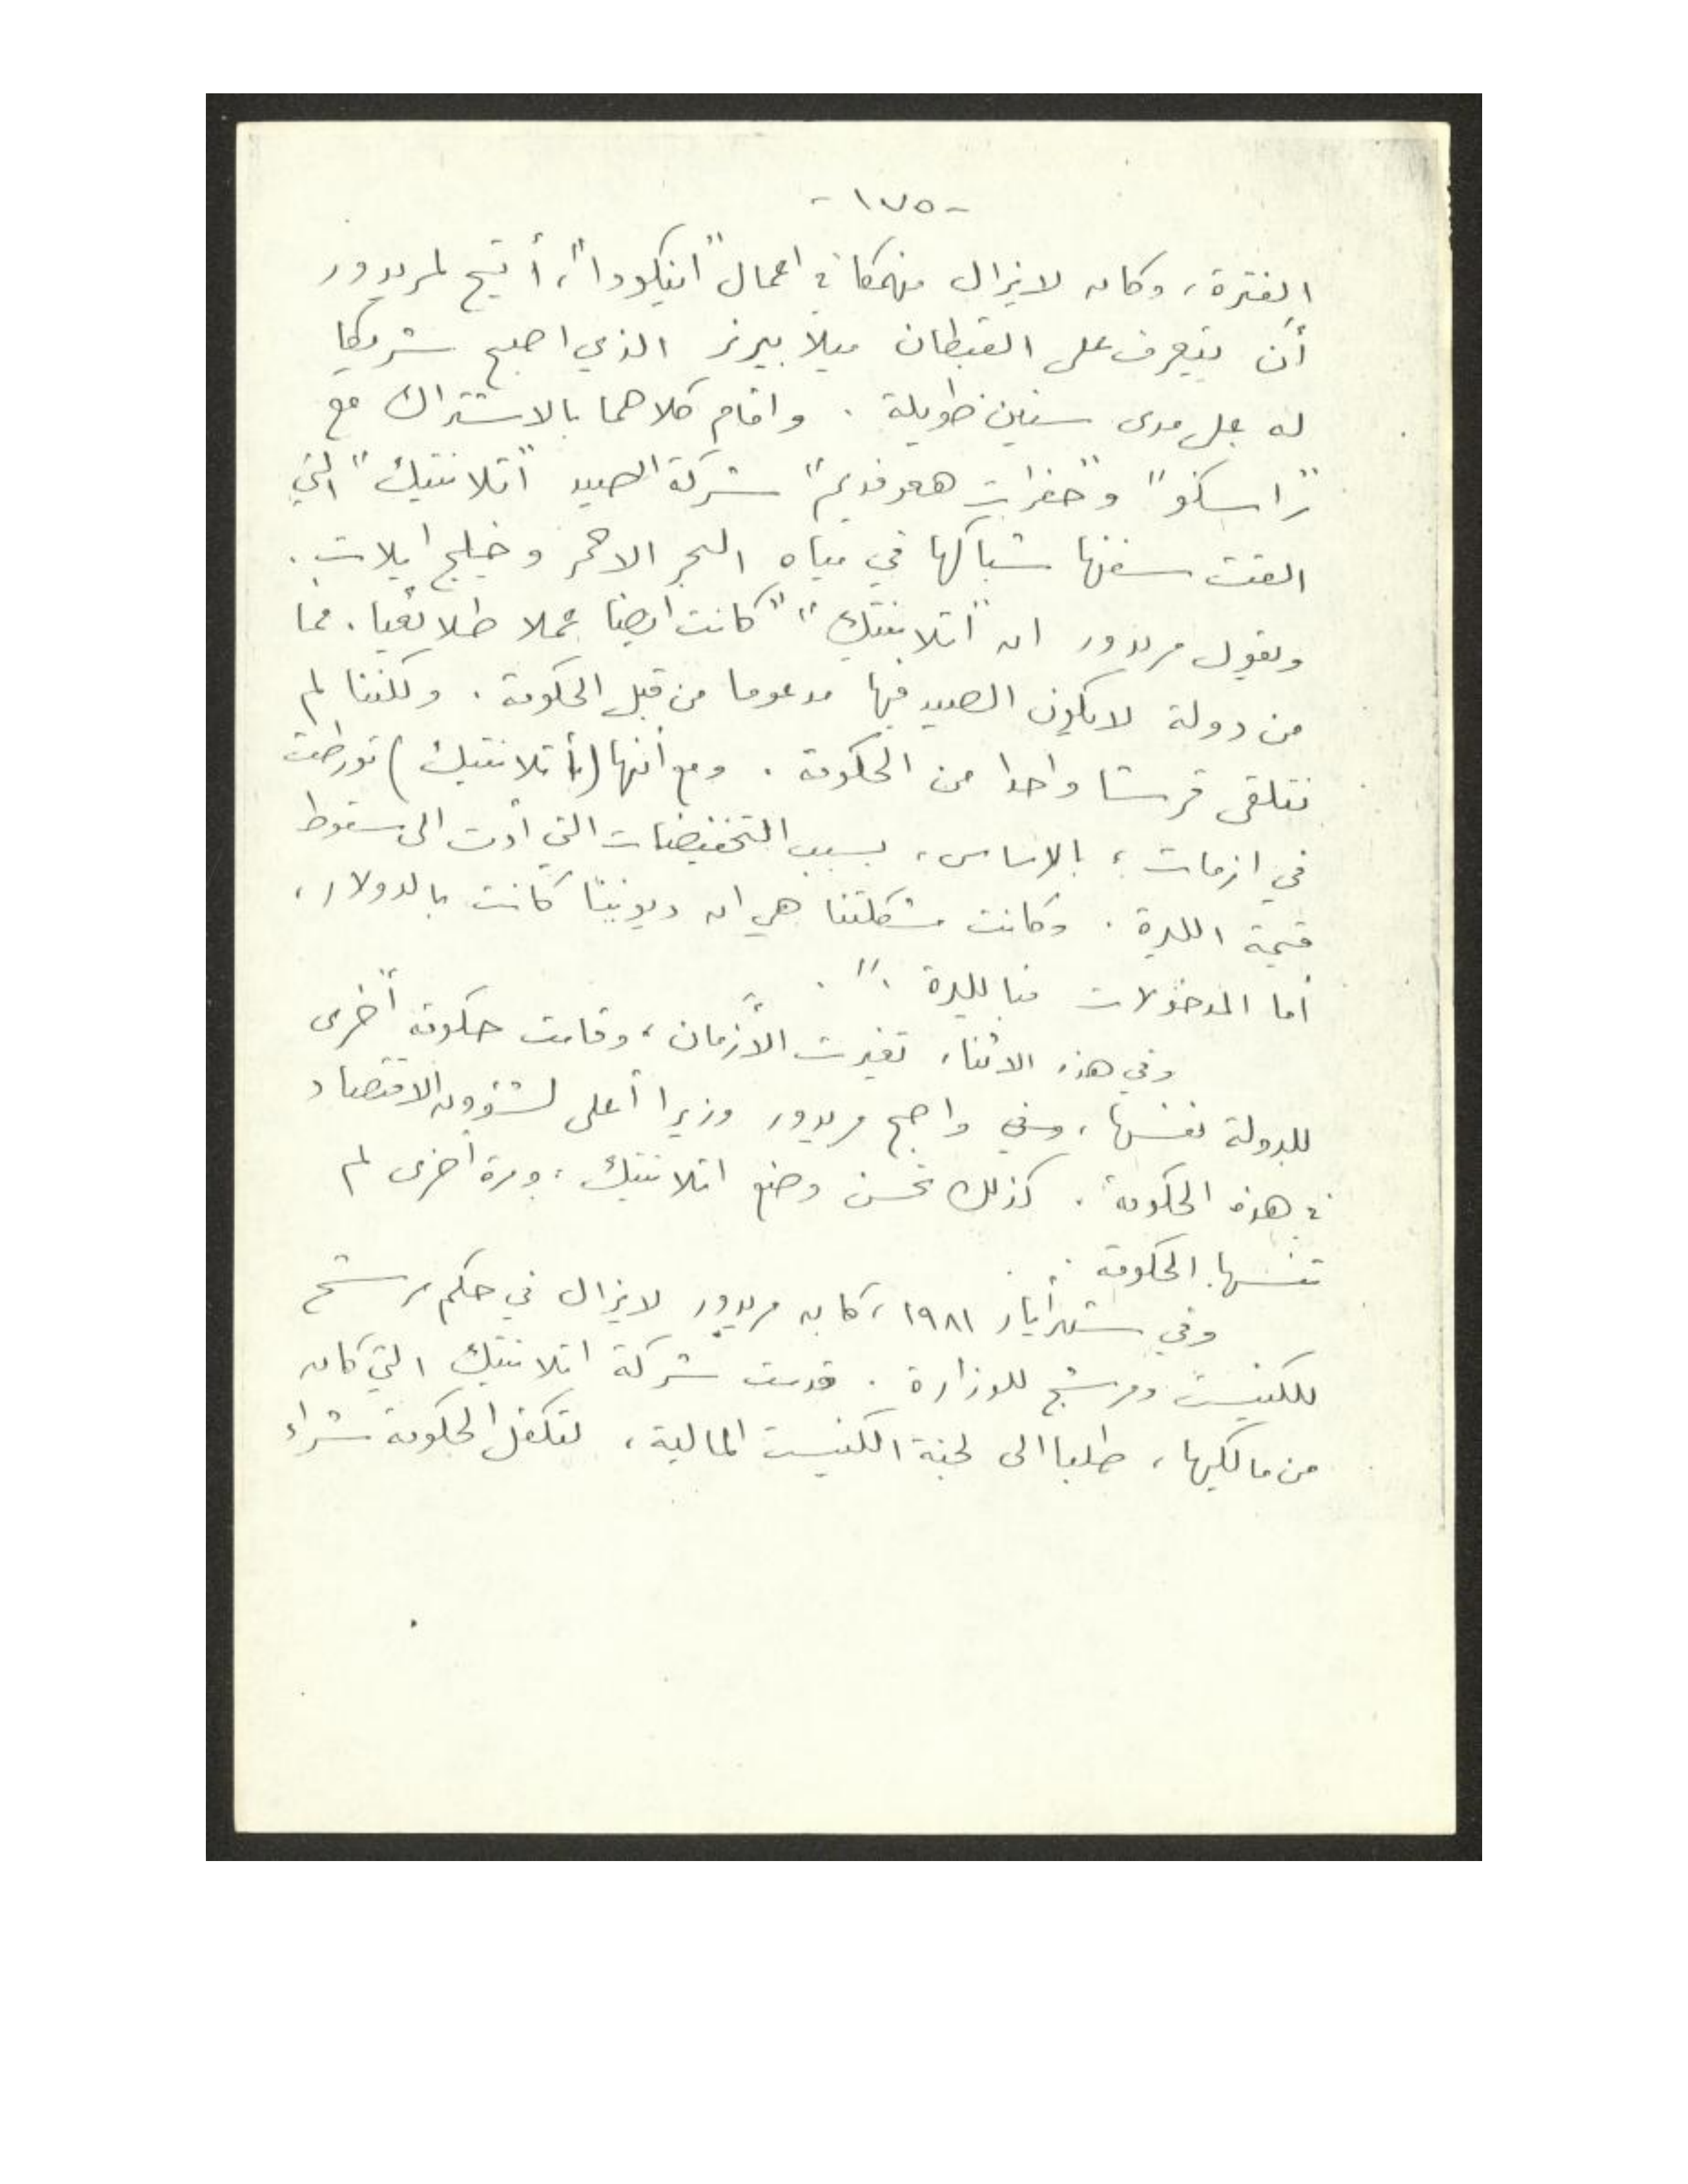 - ١٧٥ -
الفترة، وكان لايزال منهمكا في اعمال "اينكودا"، أتيح لمريدور
أن يتعرف على القبطان ميلا بيرنر الذي اصبح شريكا
له على مدى سنين طويلة . واقام كلاهما بالاشتراك مع
"راسكو" و"حفرات هعوفديم" شركة الصيد "اتلانتيك" التي
القت سفنها شباكها في مياه البحر الاحمر وخليج ايلات .
ويقول مريدور ان "أتلانتيك" "كانت ايضا عملا طلائعيا . فما
من دولة لايكون الصيد فيها مدعوما من قبل الحكومة . ولكننا لم
نتلقى قرشا واحدا من الحكومة . ومع أنها (أتلانتيك) تورطت
في ازمات ، بالاساس ، بسبب التخفيضات التي أدت الى سقوط
قيمة الليرة . وكانت مشكلتنا هي ان ديوننا كانت بالدولار ،
أما المدخولات فبالليرة ." .
وفي هذه الاثناء تغيرت الأزمان ، وقامت حكومة أخرى
للدولة نفسها ، واصبح مريدور وزيرا أعلى لشؤون الاقتصاد
في هذه الحكومة . كذلك تحسن وضع اتلانتيك ، ومرة أخرى لم
تنسها الحكومة .
وفي شهر أيار ١٩٨١ ، كان مريدور لايزال في حكم مرشح
للكنيست ومرشح للوزارة . قدمت شركة اتلانتيك التي كان
من مالكيها ، طلبا الى لجنة الكنيست المالية ، لتكفل الحكومة شراء